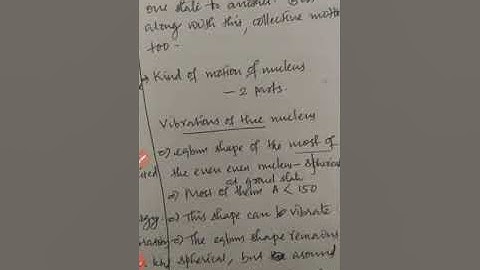 one state to another.
along with this, collective motion
too -
Kind of motion of nucleus
- 2 parts.
Vibrations of the nucleus
=) eqbm shape of the most of
the even even nucleus - spherical
at ground state
=) Most of them A < 150
=) This shape can be vibrate
=) The eqbm shape remains
spherical, but around